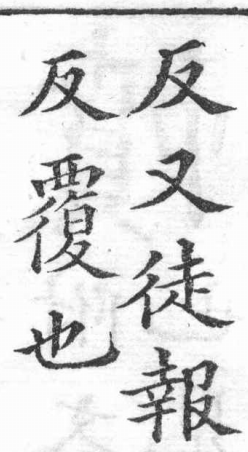 反又徒報
反覆也